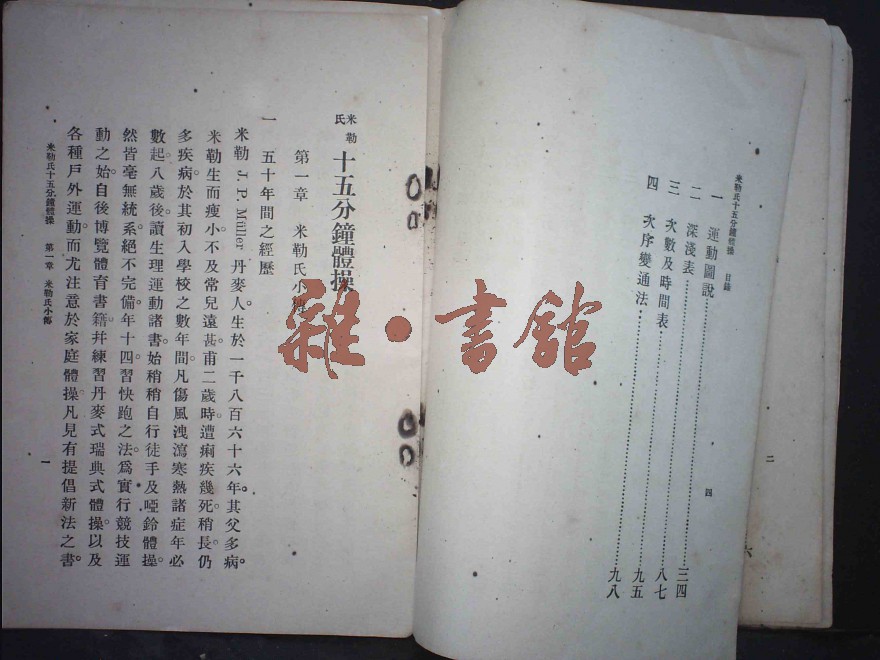 米勒氏十五分鐘體操 目錄
一 運動圖說
二 深淺表……三四
三 次數及時間表……八七
四 次序變通法……九五
九八
四
二
六
米勒氏 十五分鐘體操
第一章 米勒氏小傳
一 五十年間之經歷
米勒 J. P. Müller 丹麥人。生於一千八百六十六年。其父多病。
米勒生而瘦小。不及常兒遠甚。甫二歲時。遭痢疾幾死。稍長。仍
多疾病。於其初入學校之數年間。凡傷風洩瀉寒熱諸症。年必
數起。八歲後。讀生理運動諸書。始稍稍自行徒手及啞鈴體操。
然皆毫無統系。絕不完備。年十四。習快跑之法。爲實行競技運
動之始。自後博覽體育書籍。幷練習丹麥式瑞典式體操。以及
各種戶外運動。而尤注意於家庭體操。凡見有提倡新法之書。
米勒氏十五分鐘體操 第一章 米勒氏小傳
一
雜·書館